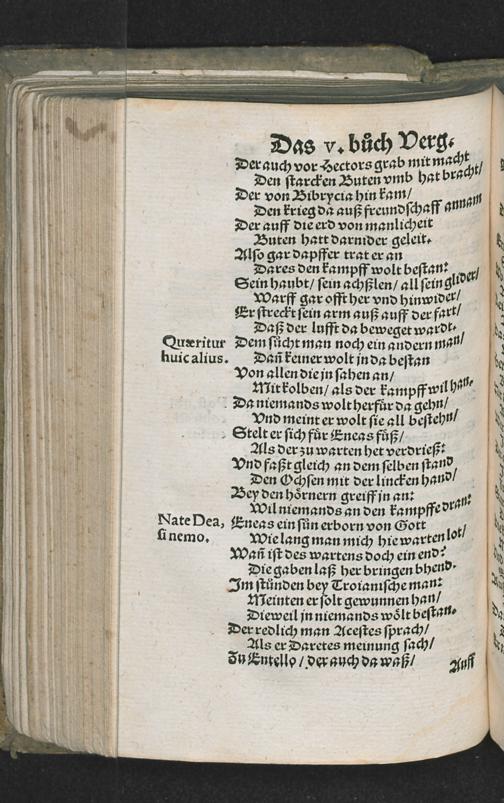 Das v. bůch Verg.
Der auch vor Hectors grab mit macht
Den starcken Buten vmb hat bracht/
Der von Bibrycia hin kam/
Den krieg da auß freundschaff annam
Der auff die erd von manlicheit
Buten hatt darnider geleit.
Also gar dapffer trat er an
Dares den kampff wolt bestan:
Sein haubt/ sein achßlen/ all sein glider/
Warff gar offt her vnd hinwider/
Er streckt sein arm auß auff der fart/
Daß der lufft da beweget wardt.
Quæritur
huic alius.
Dem sücht man noch ein andern man/
Dañ keiner wolt in da bestan
Von allen die in sahen an/
Mit kolben/ als der kampff wil han.
Da niemands wolt herfür da gehn/
Vnd meint er wolt sie all bestehn/
Stelt er sich für Eneas füß/
Als der zu warten het verdrieß:
Vnd faßt gleich an dem selben stand
Den Ochsen mit der lincken hand/
Bey den hörnern greiff in an:
Wil niemands an den kampffe dran:
Nate Dea,
si nemo.
Eneas ein sün erborn von Gott
Wie lang man mich hie warten lot/
Wañ ist des wartens doch ein end?
Die gaben laß her bringen bhend.
Im stünden bey Troianische man:
Meinten er solt gewunnen han/
Dieweil in niemands wölt bestan.
Der redlich man Acestes sprach/
Als er Daretes meinung sach/
Zu Entello/ der auch da waß/
Auff